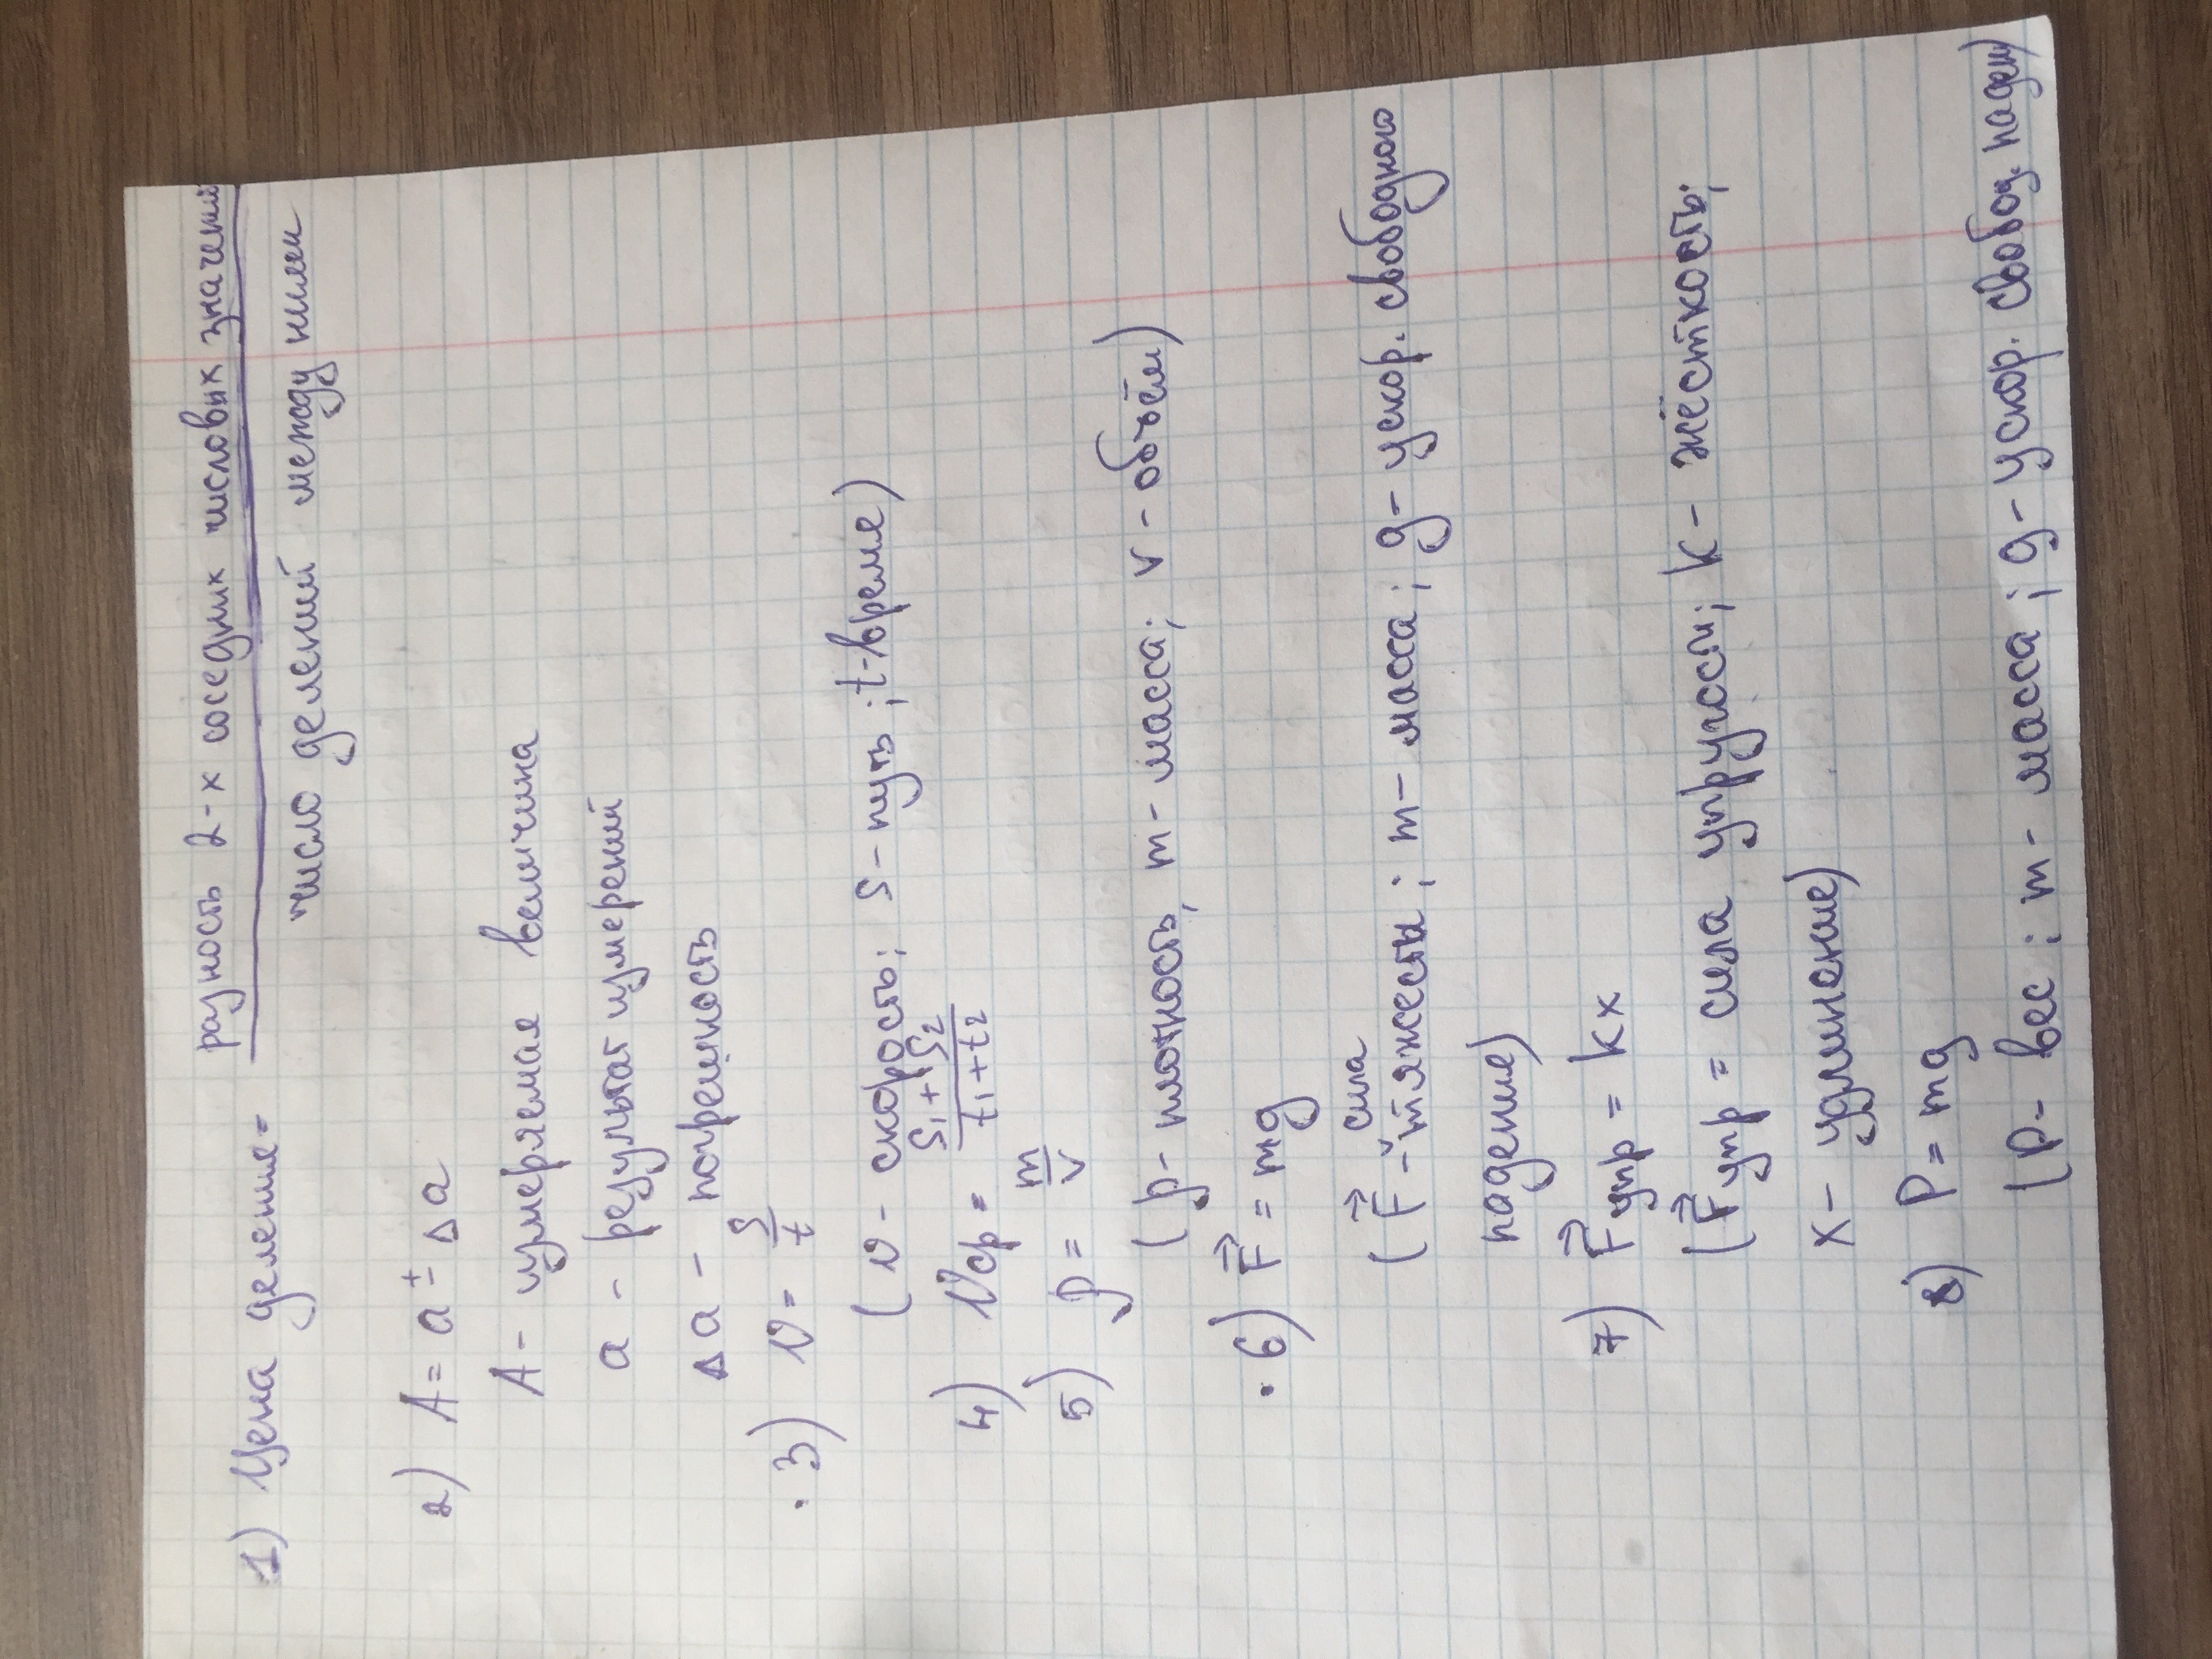 1) Цена деления= разность 2-х соседних числовых значений
число делений между ними
2) A = a ± Δa
A - измеряемая величина
a - результат измерений
Δa - погрешность
.3) v = s/t
(v - скорость; s - путь; t - время)
4) vср = s₁+s₂/t₁+t₂
5) ρ = m/v
(ρ - плотность, m - масса; v - объём)
.6) F⃗ = mg
сила
(F⃗ - тяжести; m - масса; g - ускор. свободного
падение)
7) F⃗упр = kx
(F⃗упр = сила упругости; k - жёсткость;
x - удлинение)
8) P = mg
(p - вес; m - масса; g - ускор. свобод. паден)